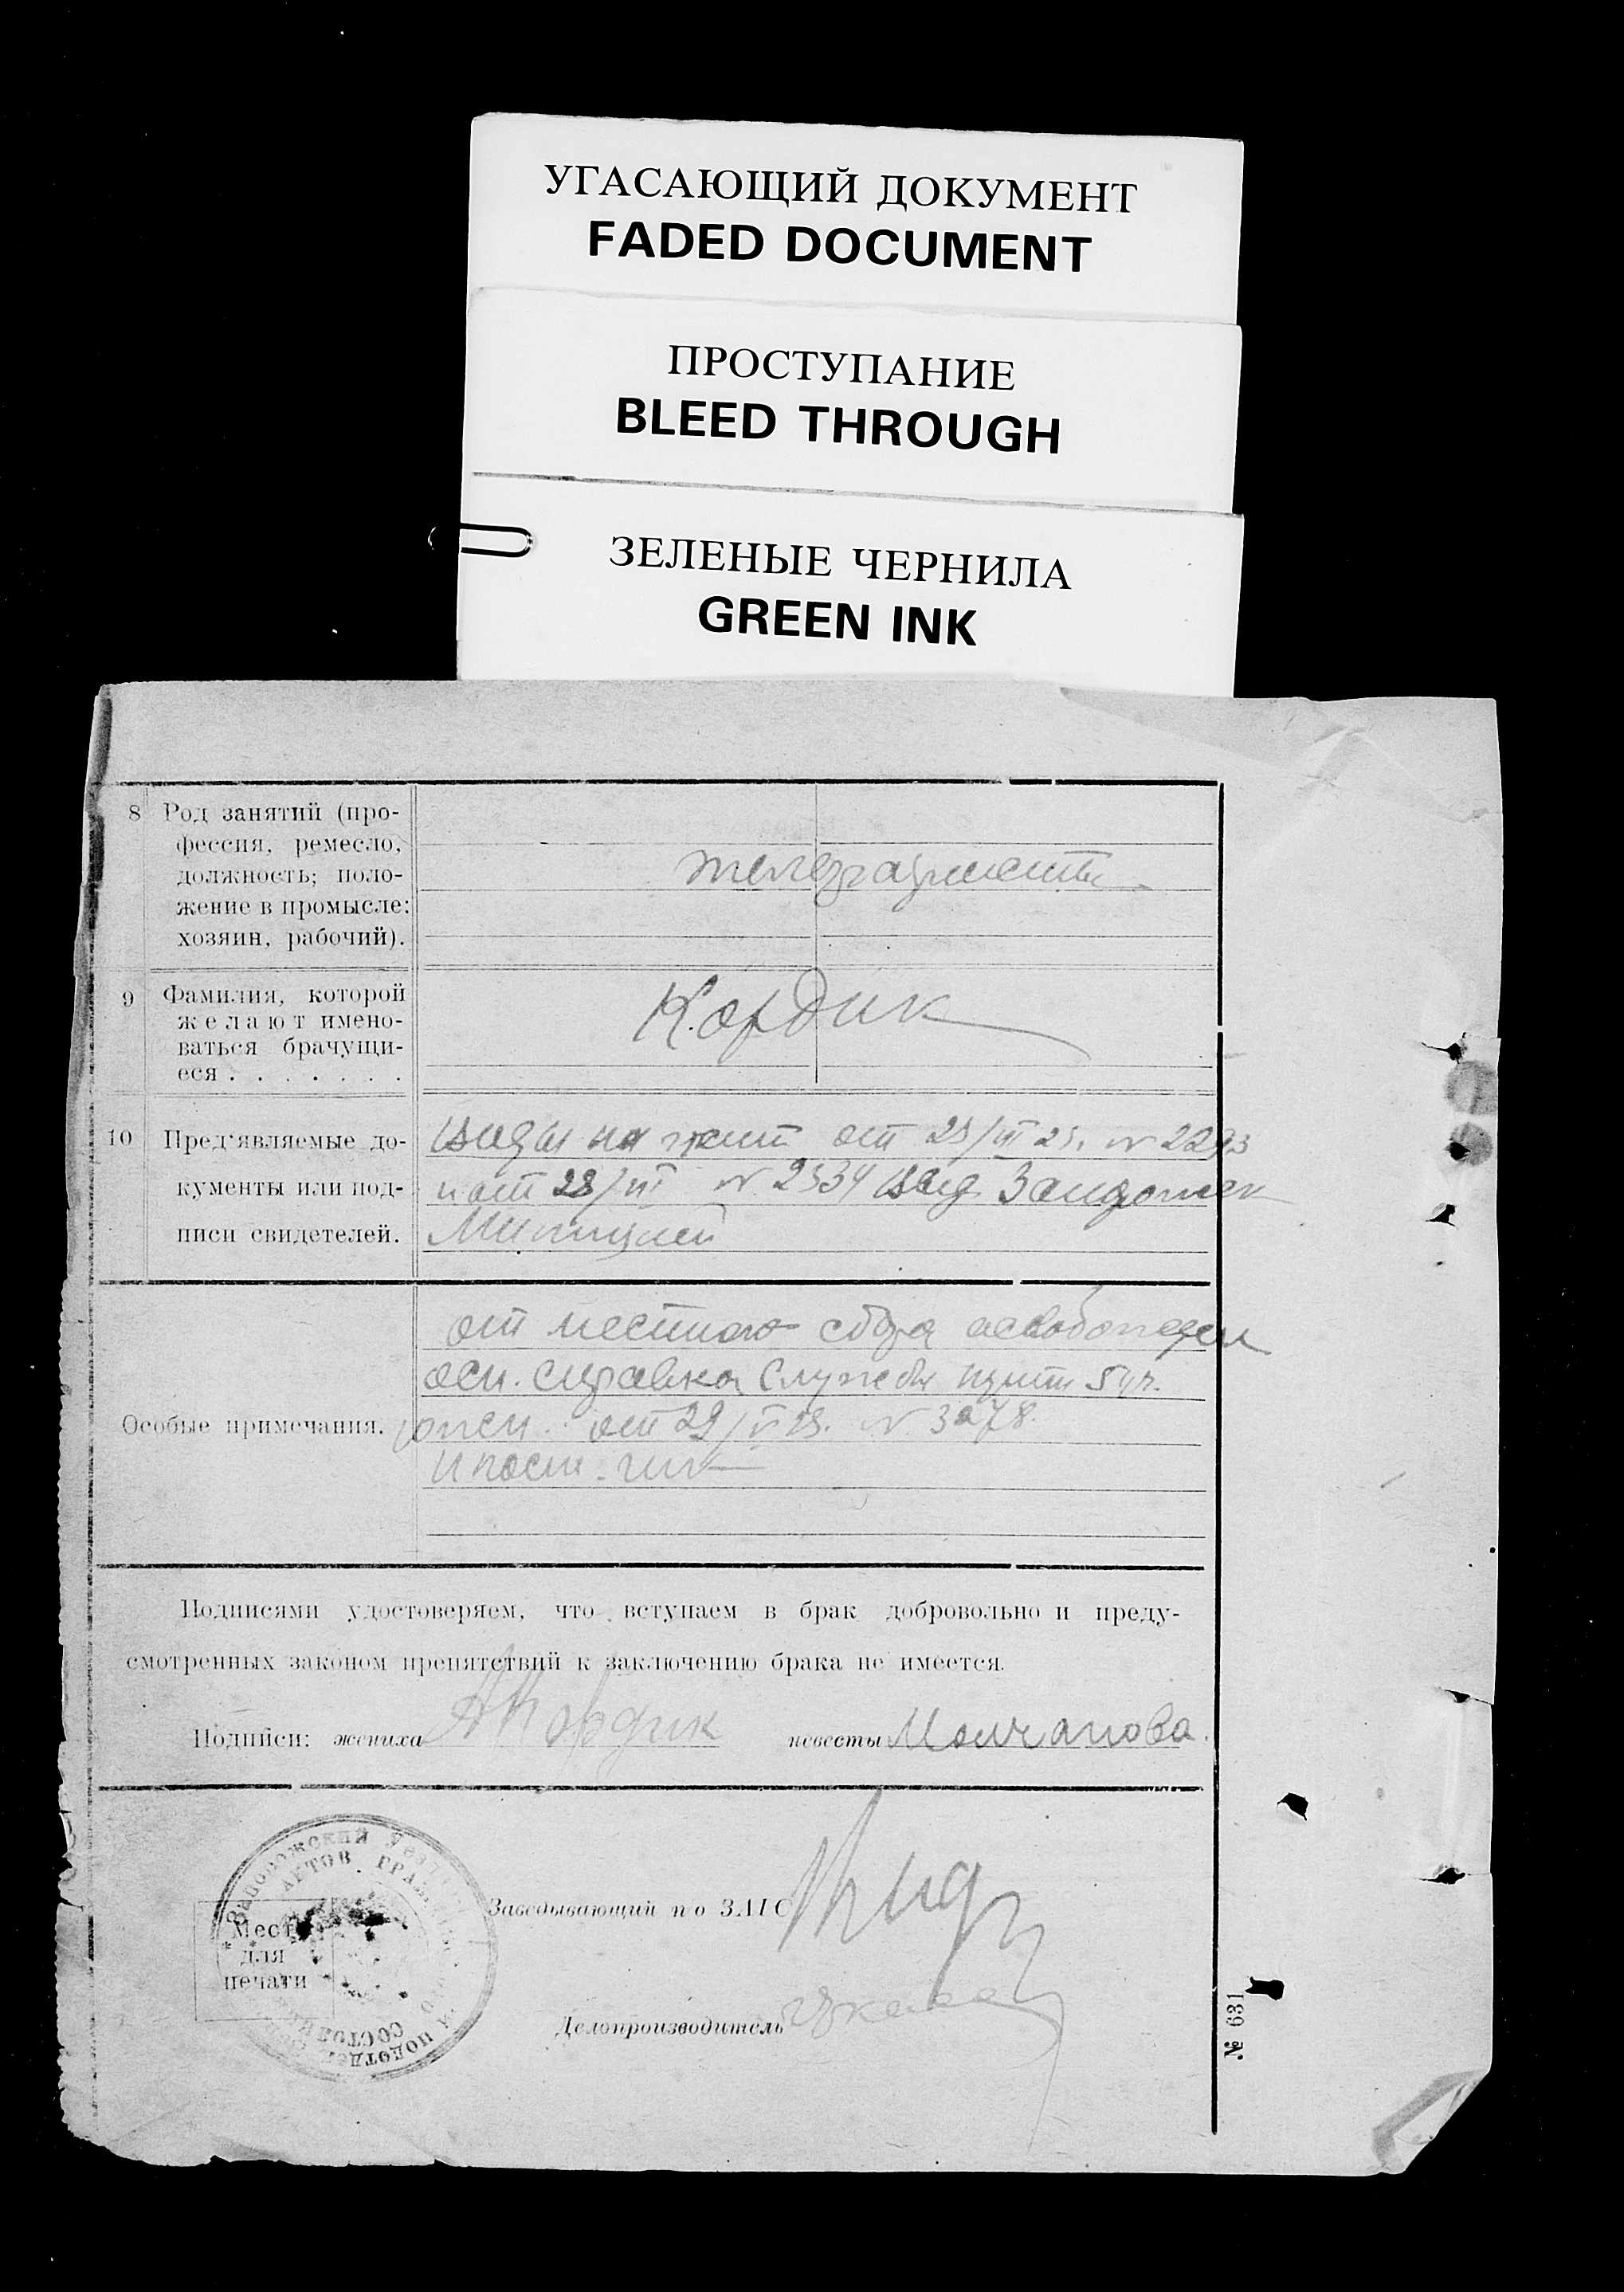 УГАСАЮЩИЙ ДОКУМЕНТ
FADED DOCUMENT
ПРОСТУПАНИЕ
BLEED THROUGH
ЗЕЛЕНЫЕ ЧЕРНИЛА
GREEN INK
8 Род занятий (про-
фессия, ремесло,
должность; поло-
жение в промысле:
хозяин, рабочий).
телеграфисты
9 Фамилия, которой
желают имено-
ваться брачущи-
еся . . . . . . .
Кордик
10 Пред'являемые до-
кументы или под-
писи свидетелей.
Виды на жит от 23/III 23. № 2293
и от 28/III № 2334 выд.
Милицией
Особые примечания.
от местного сбора освобожден
осн. справка Службы пути 5 уч.
от 29/V 23. № 3078
Подписями удостоверяем, что вступаем в брак добровольно и преду-
смотренных законом препятствий к заключению брака не имеется.
Подписи: жениха АКордик невесты Молчанова.
ЗАПОРОЖСКИЙ
АКТОВ ГРАЖДАН
СОСТОЯНИЯ
ПОДОТДЕЛ
Место
для
печати
Заведывающий по ЗАГС
Делопроизводитель
№ 631